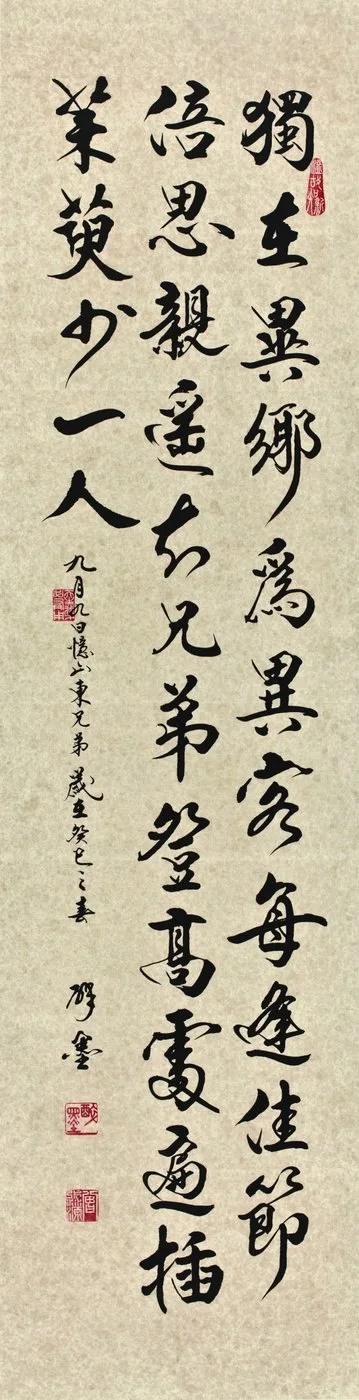 獨在異鄉爲異客每逢佳節
倍思親遥知兄弟登高處遍插
茱萸少一人
九月九日憶山東兄弟 歲在癸巳之春